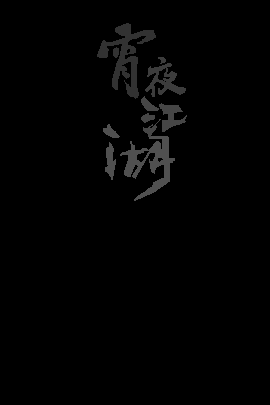 宵夜江湖